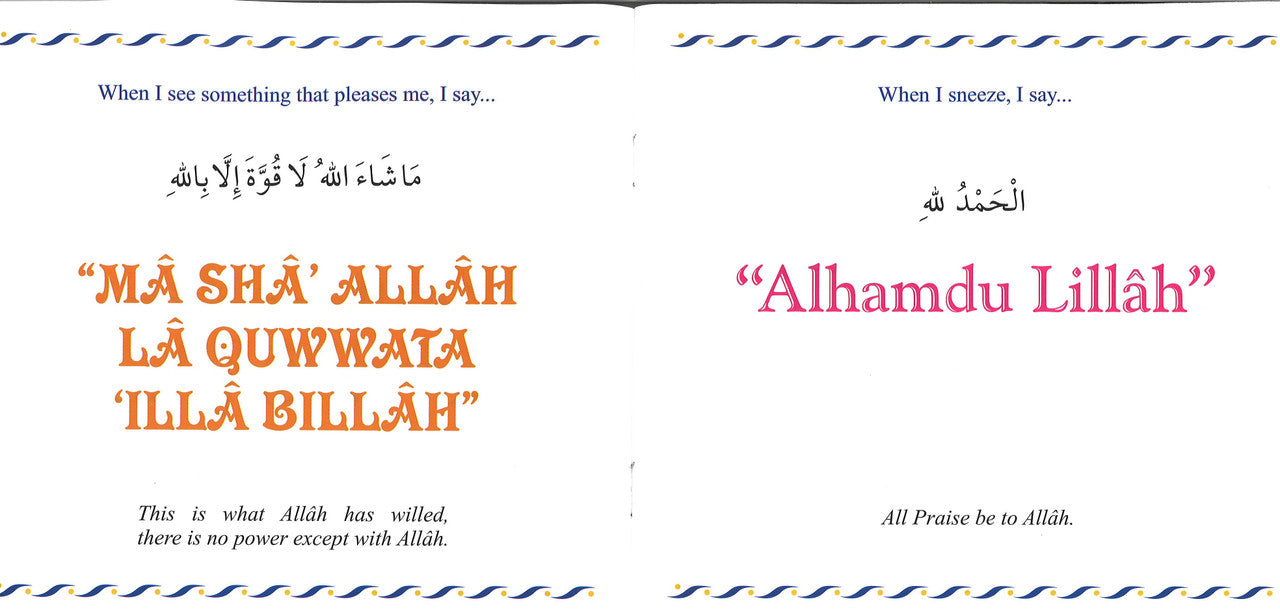 When I see something that pleases me, I say...
مَا شَاءَ اللهُ لَا قُوَّةَ إِلَّا بِاللهِ
“MÂ SHÂ’ ALLÂH
LÂ QUWWATA
‘ILLÂ BILLÂH”
This is what Allâh has willed,
there is no power except with Allâh.
When I sneeze, I say...
الْحَمْدُ لِلهِ
“Alhamdu Lillâh”
All Praise be to Allâh.